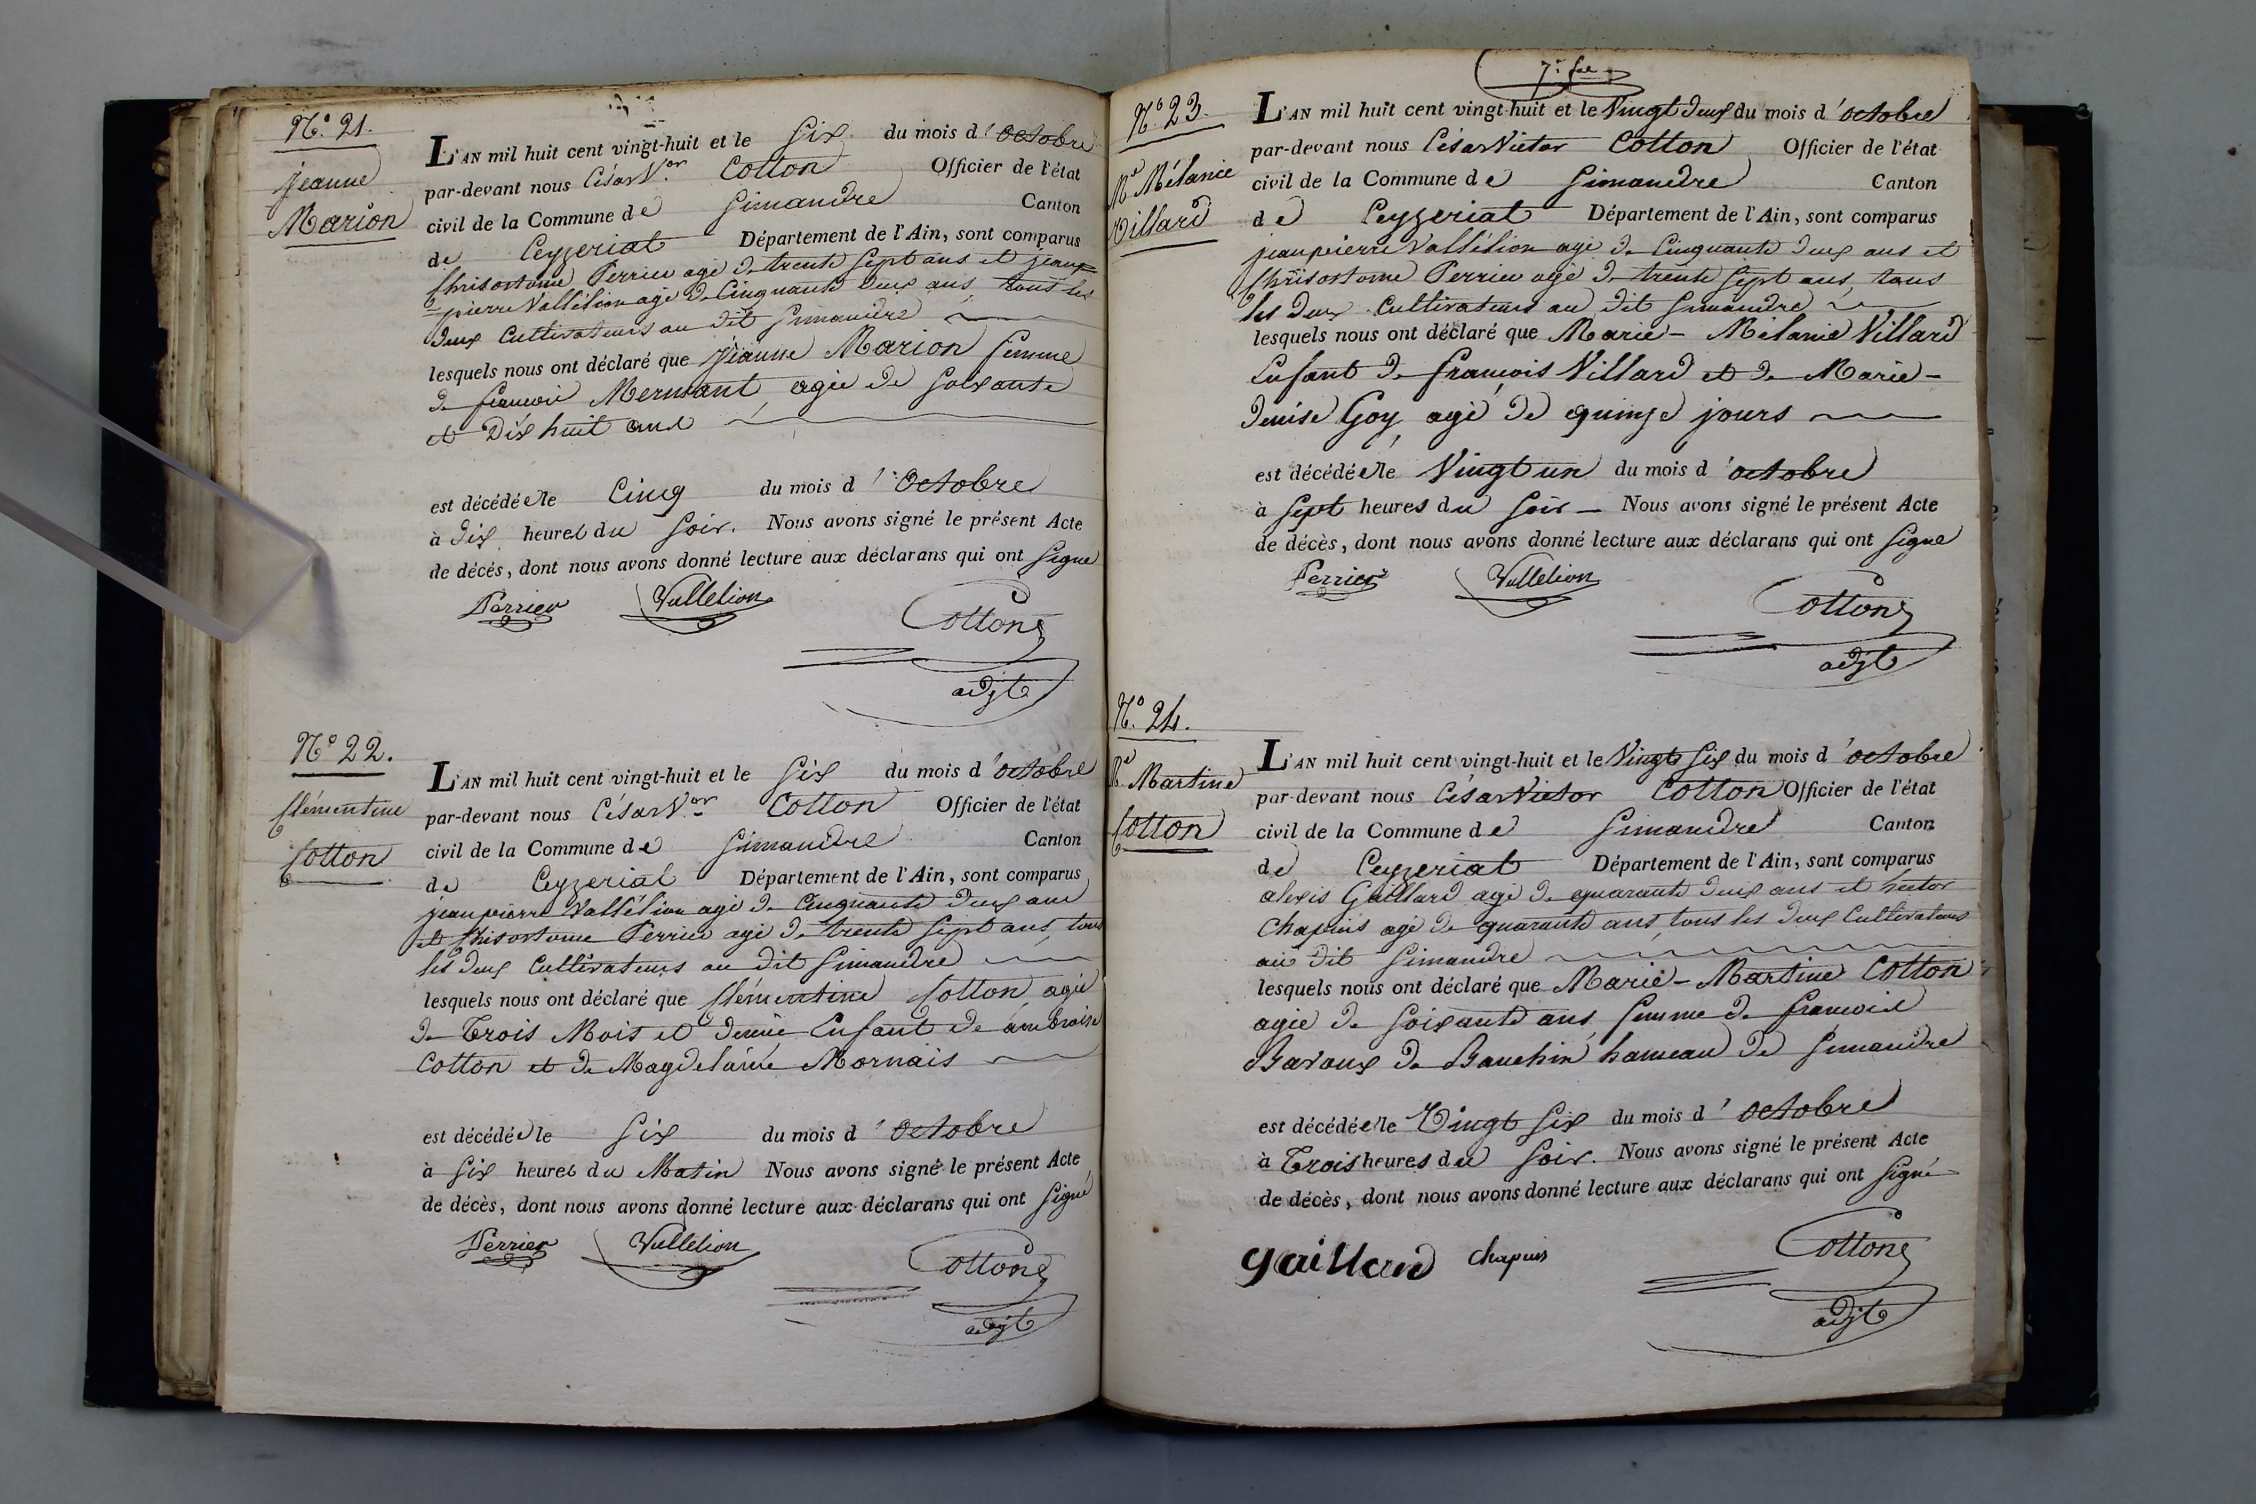 N.° 21.
Jeanne
Marion
L'AN mil huit cent vingt-huit et le Six du mois d'Octobre
par-devant nous César V.or Cotton Officier de l'état
civil de la Commune de Simandre Canton
de Ceyzeriat Département de l'Ain, sont comparus
Chrisostome Perrier agé de trente Sept ans et jean
pierre Vallélion agé de Cinquante Deux ans tous les
deux Cultivateurs au dit Simandre
lesquels nous ont déclaré que Jeanne Marion femme
de francois Mermant, agée de Soixante
et Dix huit ans
est décédée le Cinq du mois d'Octobre
à Dix heures du Soir. Nous avons signé le présent Acte
de décès, dont nous avons donné lecture aux déclarans qui ont Signé
Perrier Vallelion Cotton
adjt
N° 22.
Clémentine
Cotton
L'AN mil huit cent vingt-huit et le Six du mois d'octobre
par-devant nous César V.or Cotton Officier de l'état
civil de la Commune de Simandre Canton
de Ceyzeriat Département de l'Ain, sont comparus
jean pierre Vallélion agé de Cinquante Deux ans
et Chrisostome Perrier agé de trente Sept ans, tous
les deux Cultivateurs au dit Simandre
lesquels nous ont déclaré que Clémentine Cotton agée
de Trois Mois et demie Enfant de ambroise
Cotton et de Magdelaine Mornais
est décédée le Six du mois d'Octobre
à Six heures du Matin Nous avons signé le présent Acte
de décès, dont nous avons donné lecture aux déclarans qui ont Signé
Perrier Vallelion Cotton
adjt
7.e fol
N° 23.
M.e Mélanie
Villard
L'AN mil huit cent vingt-huit et le Vingt Deux du mois d'octobre
par-devant nous César Victor Cotton Officier de l'état
civil de la Commune de Simandre Canton
de Ceyzeriat Département de l'Ain, sont comparus
jean pierre Vallélion agé de Cinquante Deux ans et
Chrisostome Perrier agé de trente Sept ans, tous
les deux Cultivateurs au dit Simandre
lesquels nous ont déclaré que Marie - Mélanie Villard
Enfant de francois Villard et de Marie -
denise Goy, agé de quinze jours
est décédée le Vingt un du mois d'octobre
à Sept heures du Soir - Nous avons signé le présent Acte
de décès, dont nous avons donné lecture aux déclarans qui ont Signé
Perrier Vallelion Cotton
adjt
N.° 24.
M.e Martine
Cotton
L'AN mil huit cent vingt-huit et le Vingt Six du mois d'octobre
par-devant nous César Victor Cotton Officier de l'état
civil de la Commune de Simandre Canton
de Ceyzeriat Département de l'Ain, sont comparus
alexis Gaillard agé de quarante deux ans et hector
Chapuis agé de quarante ans, tous les deux Cultivateurs
au dit Simandre
lesquels nous ont déclaré que Marie - Martine Cotton
agée de Soixante ans, femme de francois
Bavoux de Bauchin hameau de Simandre
est décédée le Vingt Six du mois d'octobre
à Trois heures du Soir. Nous avons signé le présent Acte
de décès, dont nous avons donné lecture aux déclarans qui ont Signé
gaillard Chapuis Cotton
adjt